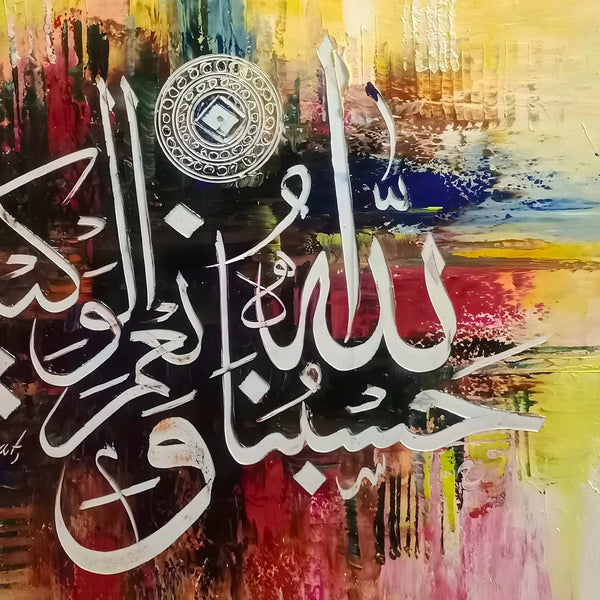 حسبنا الله
ونعم الوكي